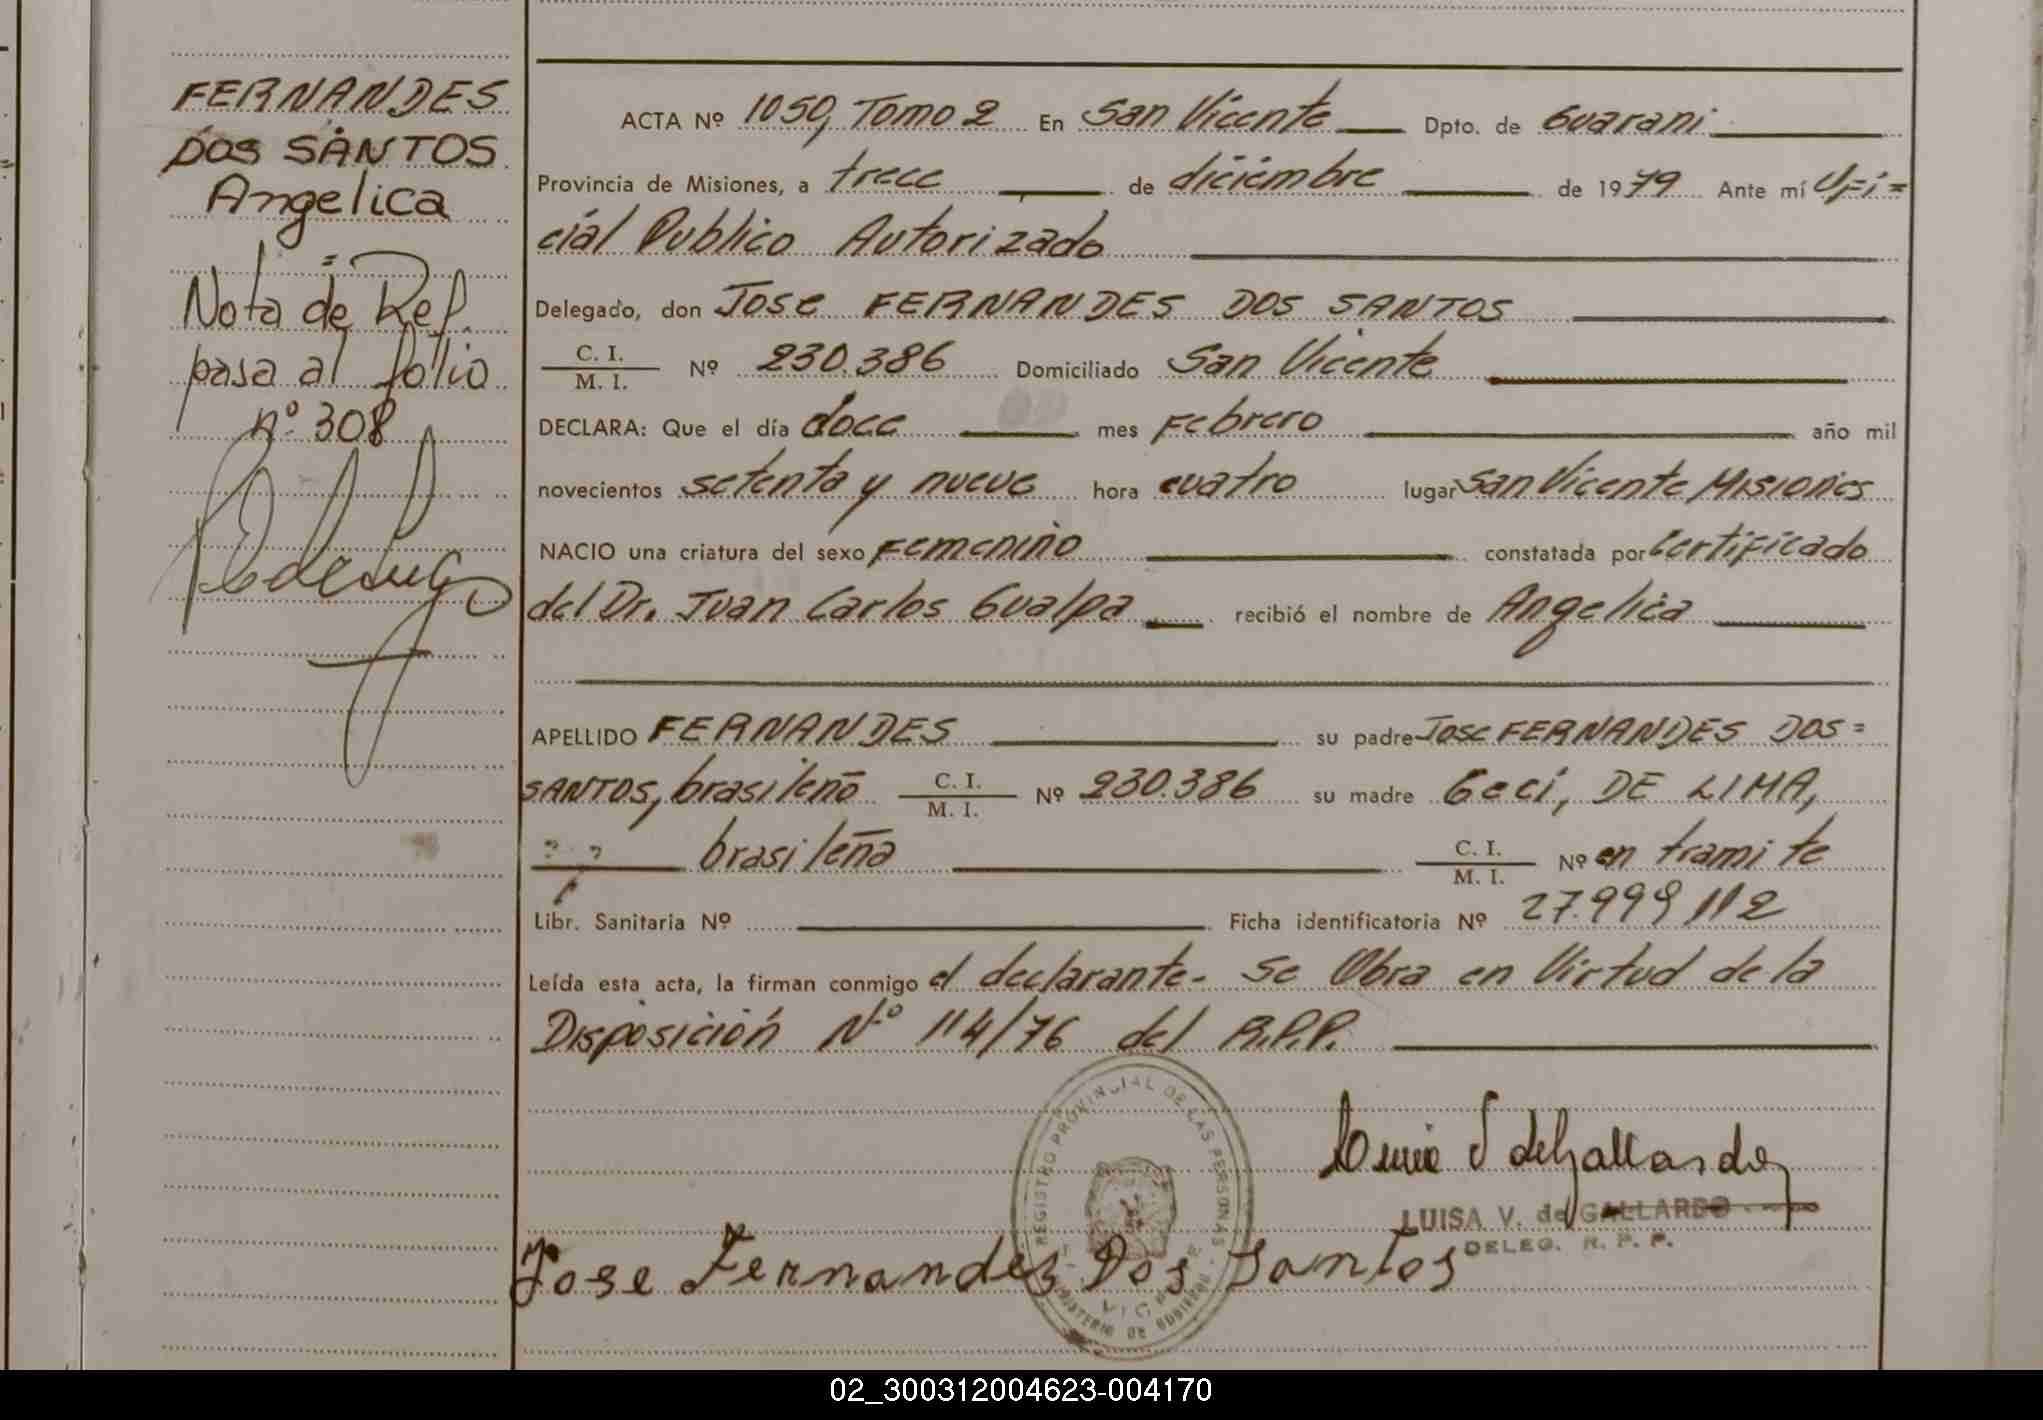 FERNANDES
DOS SANTOS
Angelica
=
Nota de Ref.
pasa al follio
nº 308
ACTA Nº 1050, Tomo 2 En San Vicente Dpto. de Guarani
Provincia de Misiones, a trece de diciembre de 1979 Ante mí Ofi=
cial Publico Autorizado
Delegado, don Jose FERNANDES DOS SANTOS
C. I.
M. I. Nº 230.386 Domiciliado San Vicente
DECLARA: Que el día doce mes Febrero año mil
novecientos setenta y nueve hora cuatro lugar San Vicente Misiones
NACIO una criatura del sexo Femenino constatada por Certificado
del Dr. Juan Carlos Gualpa recibió el nombre de Angelica
APELLIDO FERNANDES su padre Jose FERNANDES DOS=
SANTOS, brasileño C. I.
M. I. Nº 230.386 su madre Geci, DE LIMA,
brasileña C. I.
M. I. Nº en tramite
Libr. Sanitaria Nº Ficha identificatoria Nº 27.999 112
Leída esta acta, la firman conmigo el declarante- Se Obra en Virtud de la
Disposición Nº 114/76 del R.P.P.
REGISTRO PROVINCIAL DE LAS PERSONAS
MINISTERIO DE GOBIERNO
LUISA V. de GALLARDO
DELEG. R. P. P.
Jose Fernandes Dos Santos
02_300312004623-004170